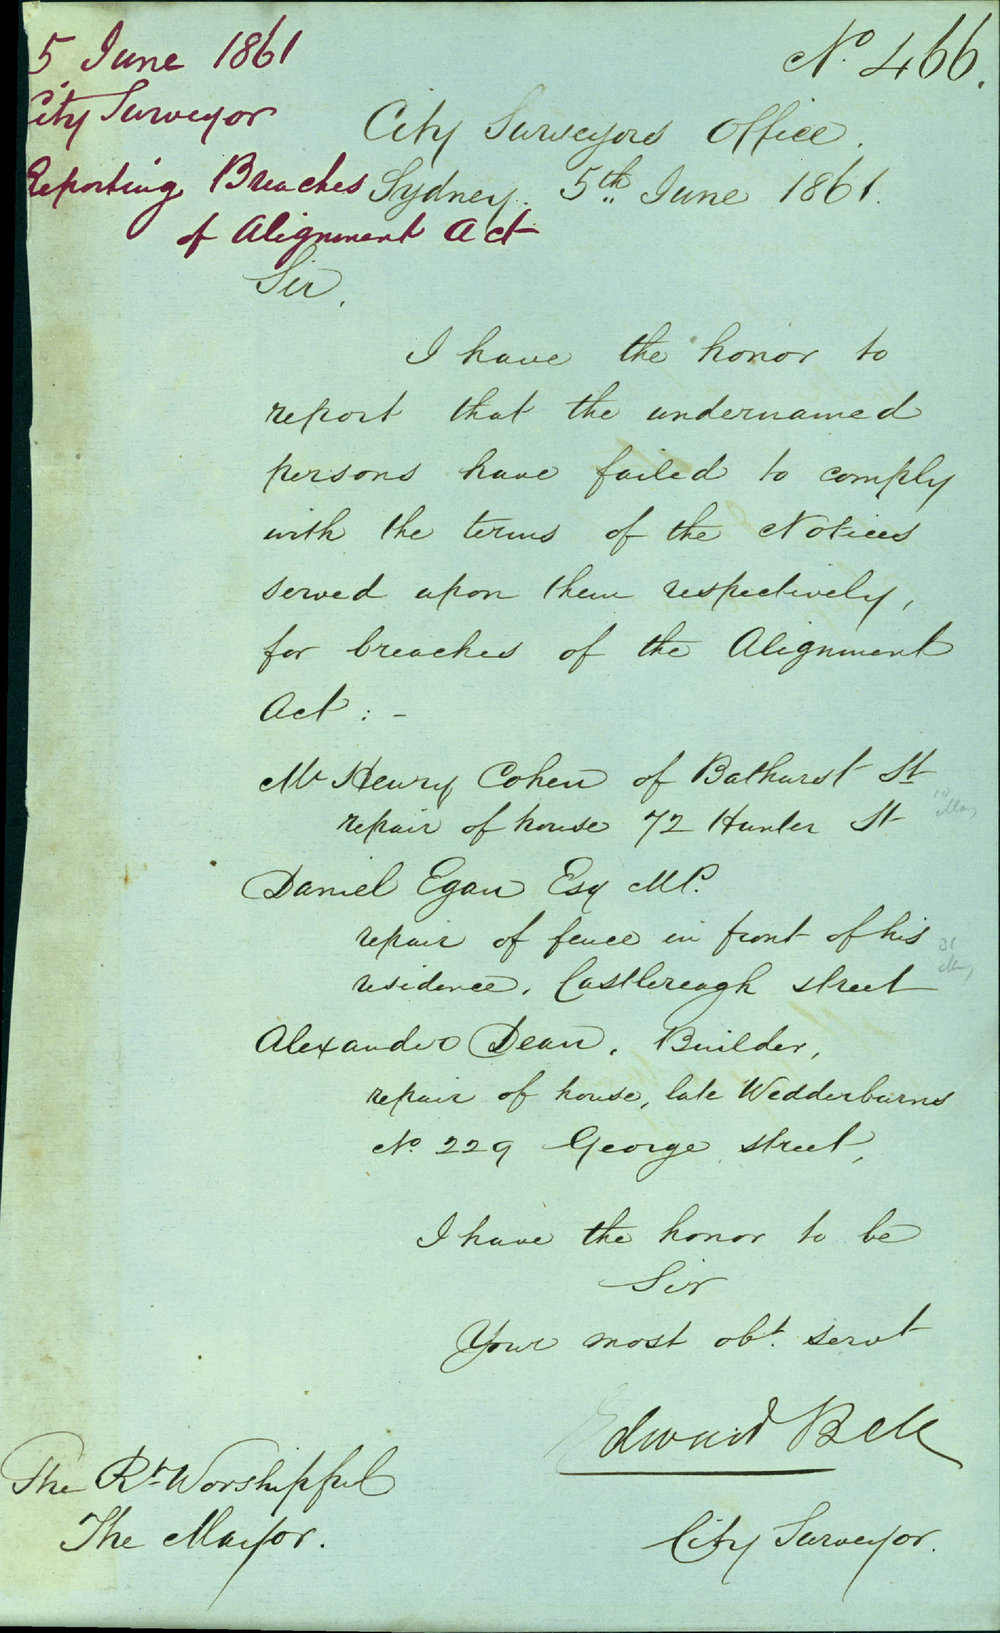 5 June 1861
City Surveyor
Reporting Breaches
of Alignment Act
No. 466.
City Surveyors Office.
Sydney. 5th June 1861.
Sir,
I have the honor to
report that the undernamed
persons have failed to comply
with the terms of the Notices
served upon them respectively,
for breaches of the Alignment
Act: -
Mr Henry Cohen of Bathurst St
repair of house 72 Hunter St
10
May
Daniel Egan Esq MP.
repair of fence in front of his
residence. Castlereagh street
31
May
Alexander Dean. Builder,
repair of house, late Wedderburns
No. 229 George street,
I have the honor to be
Sir
Your most obt. servt
Edward Bell
City Surveyor.
The Rt Worshipful
The Mayor.